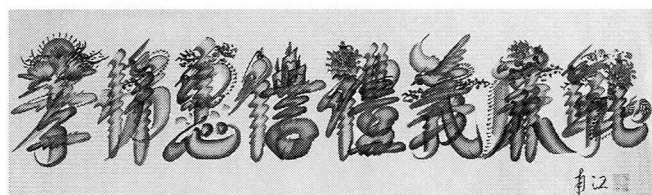 孝悌忠信禮義廉恥
南江